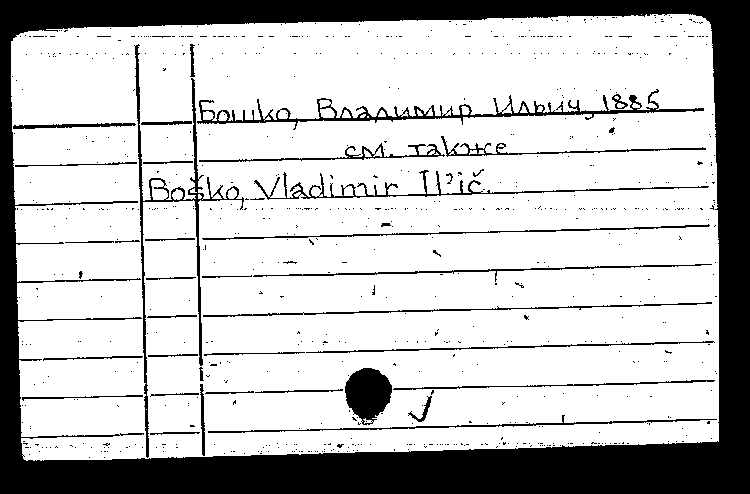 Бошко, Владимир Ильич, 1885
см. также
Boško, Vladimir Il'ič.